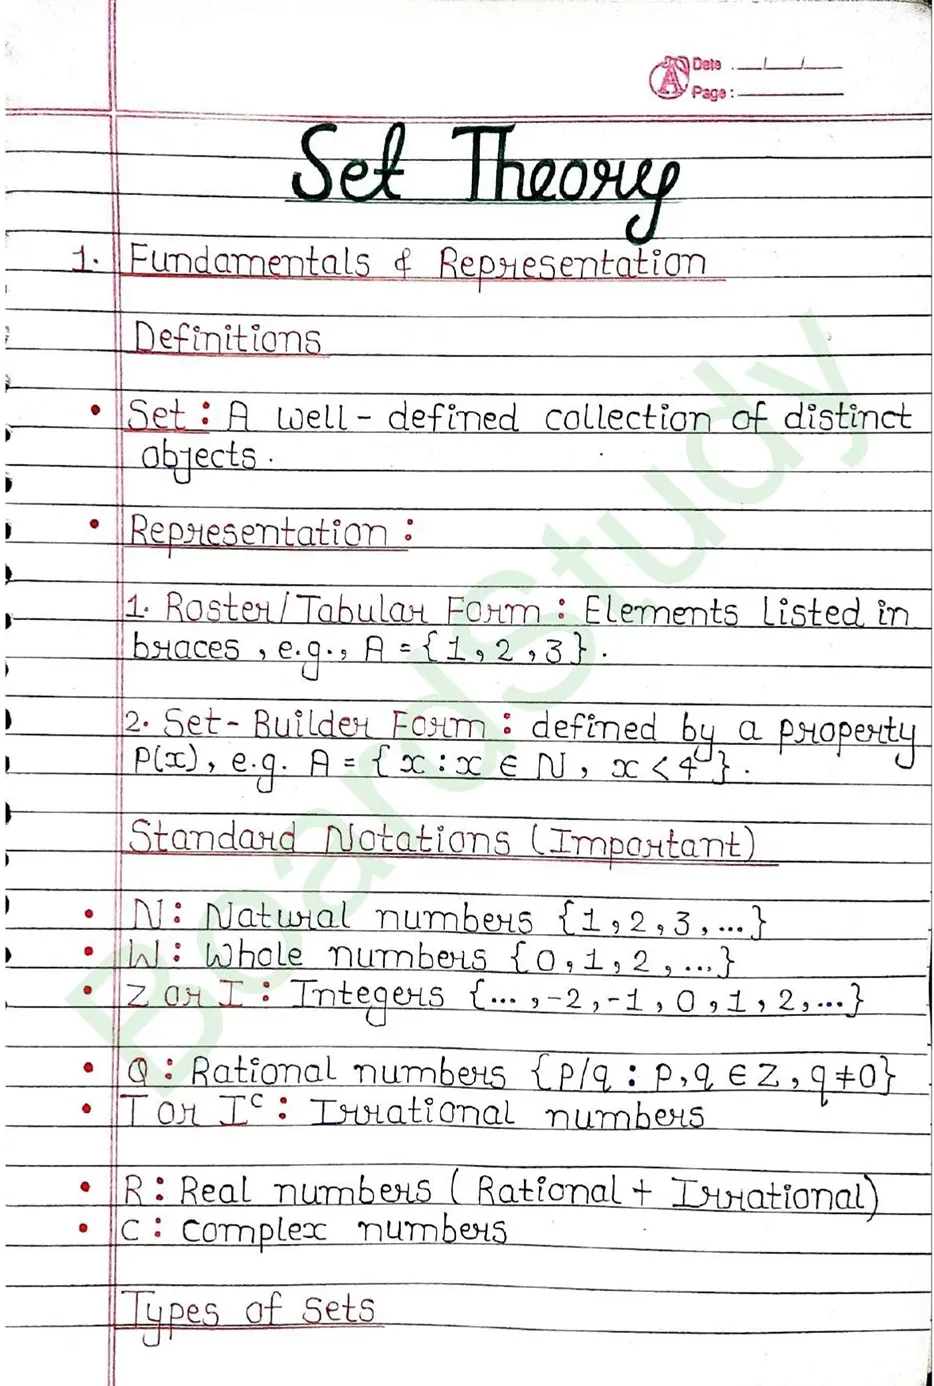 Date
Page :
Set Theory
1. Fundamentals & Representation
Definitions
• Set : A well - defined collection of distinct
objects.
• Representation :
1. Roster/Tabular Form : Elements Listed in
braces , e.g., A = {1, 2, 3} .
2. Set- Builder Form : defined by a property
P(x), e.g. A = { x : x ∈ N , x < 4 } .
Standard Notations (Important)
• N : Natural numbers {1, 2, 3, ...}
• W : Whole numbers {0, 1, 2, ...}
• Z or I : Integers {... , -2, -1, 0, 1, 2, ...}
• Q : Rational numbers {p/q : p, q ∈ Z , q ≠ 0}
• T or Iᶜ : Irrational numbers
• R : Real numbers ( Rational + Irrational)
• C : Complex numbers
Types of sets
BoardStudy